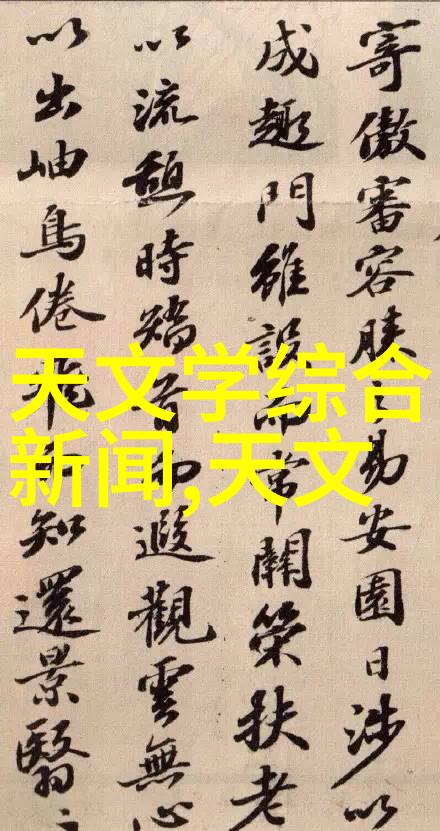 寄傲審容膝之易安園日涉以
成趣門雖設而常關策扶老
以流憩時矯首而遐觀雲無心
以出岫鳥倦飛而知還景翳
天文学综合
新闻,天文